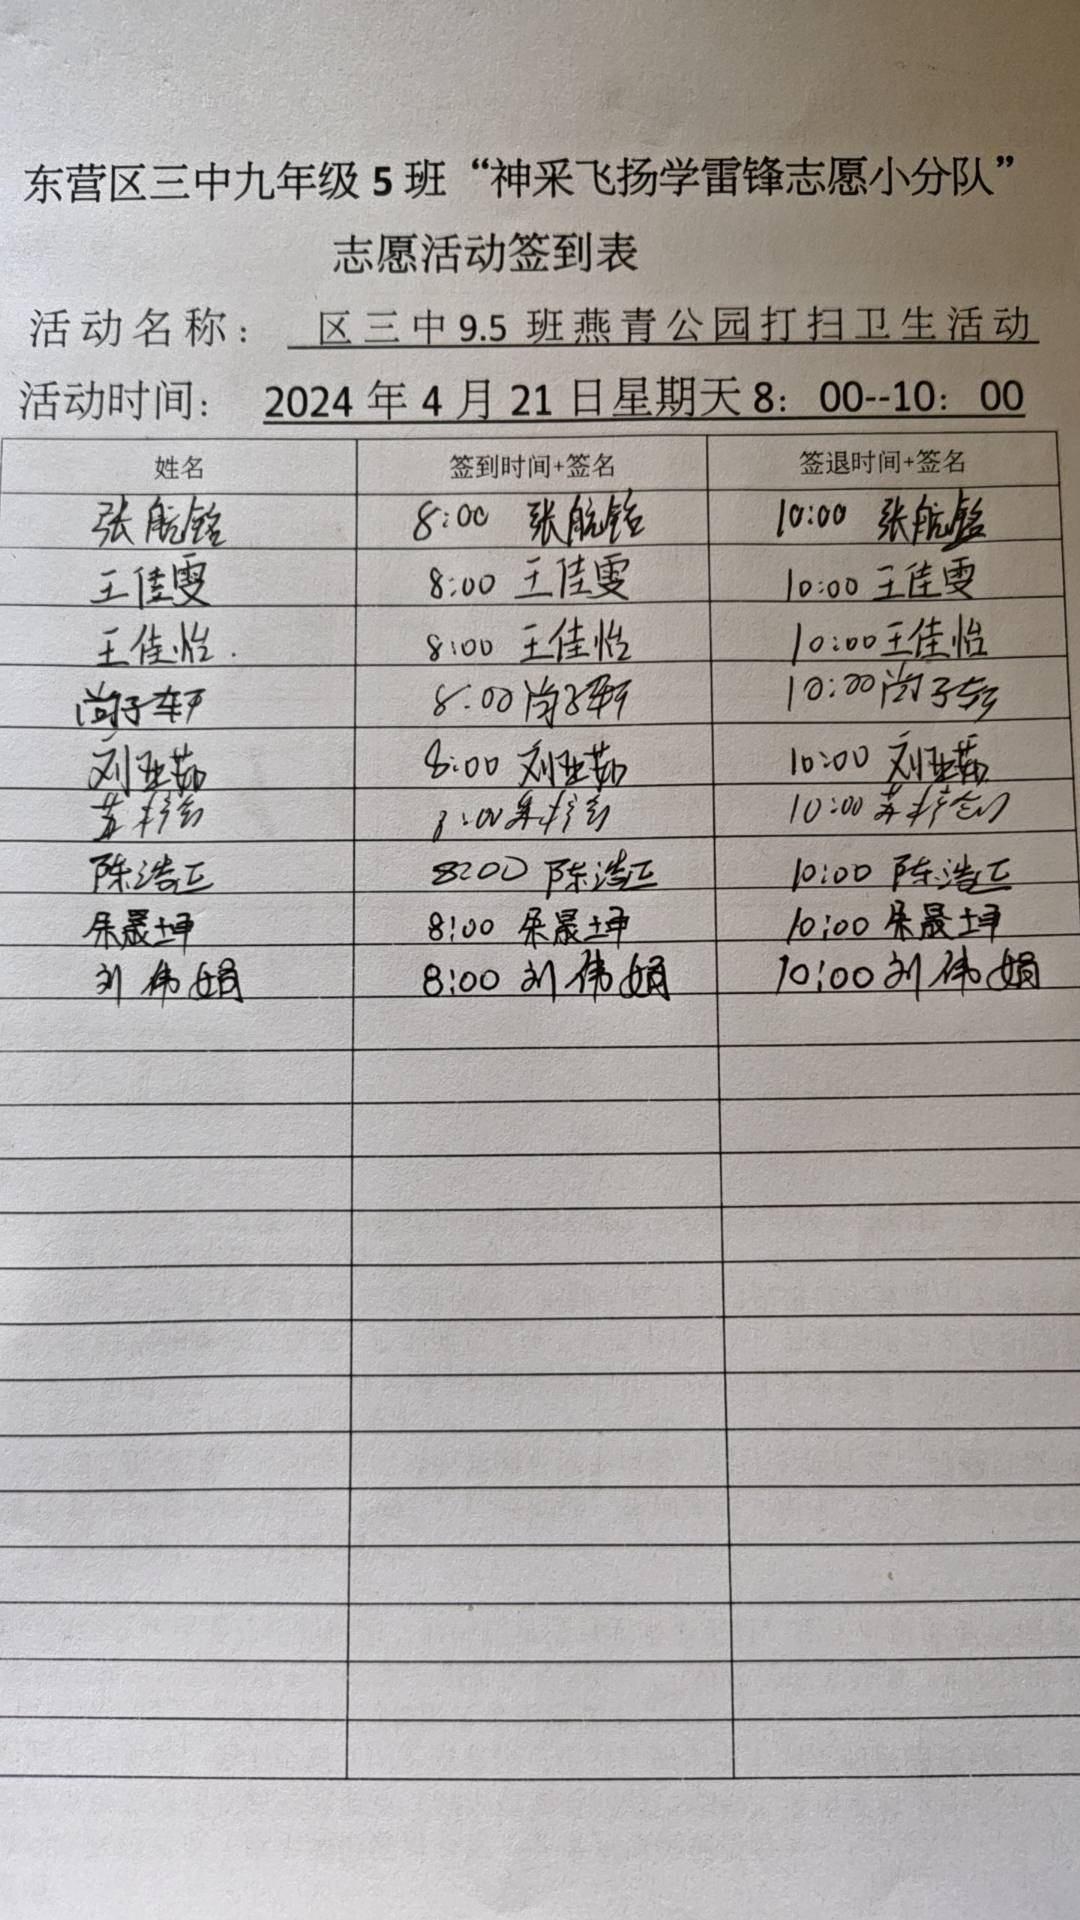 东营区三中九年级5班“神采飞扬学雷锋志愿小分队”
志愿活动签到表
活动名称： 区三中9.5班燕青公园打扫卫生活动
活动时间： 2024年4月21日星期天8：00--10：00
姓名 签到时间+签名 签退时间+签名
张航铭 8:00 张航铭 10:00 张航铭
王佳雯 8:00 王佳雯 10:00 王佳雯
王佳怡. 8:00 王佳怡 10:00 王佳怡
尚子轩 8:00 尚子轩 10:00 尚子轩
刘亚茹 8:00 刘亚茹 10:00 刘亚茹
8:00 10:00
陈浩正 8:00 陈浩正 10:00 陈浩正
晟坤 8:00 晟坤 10:00 晟坤
刘伟娟 8:00 刘伟娟 10:00 刘伟娟